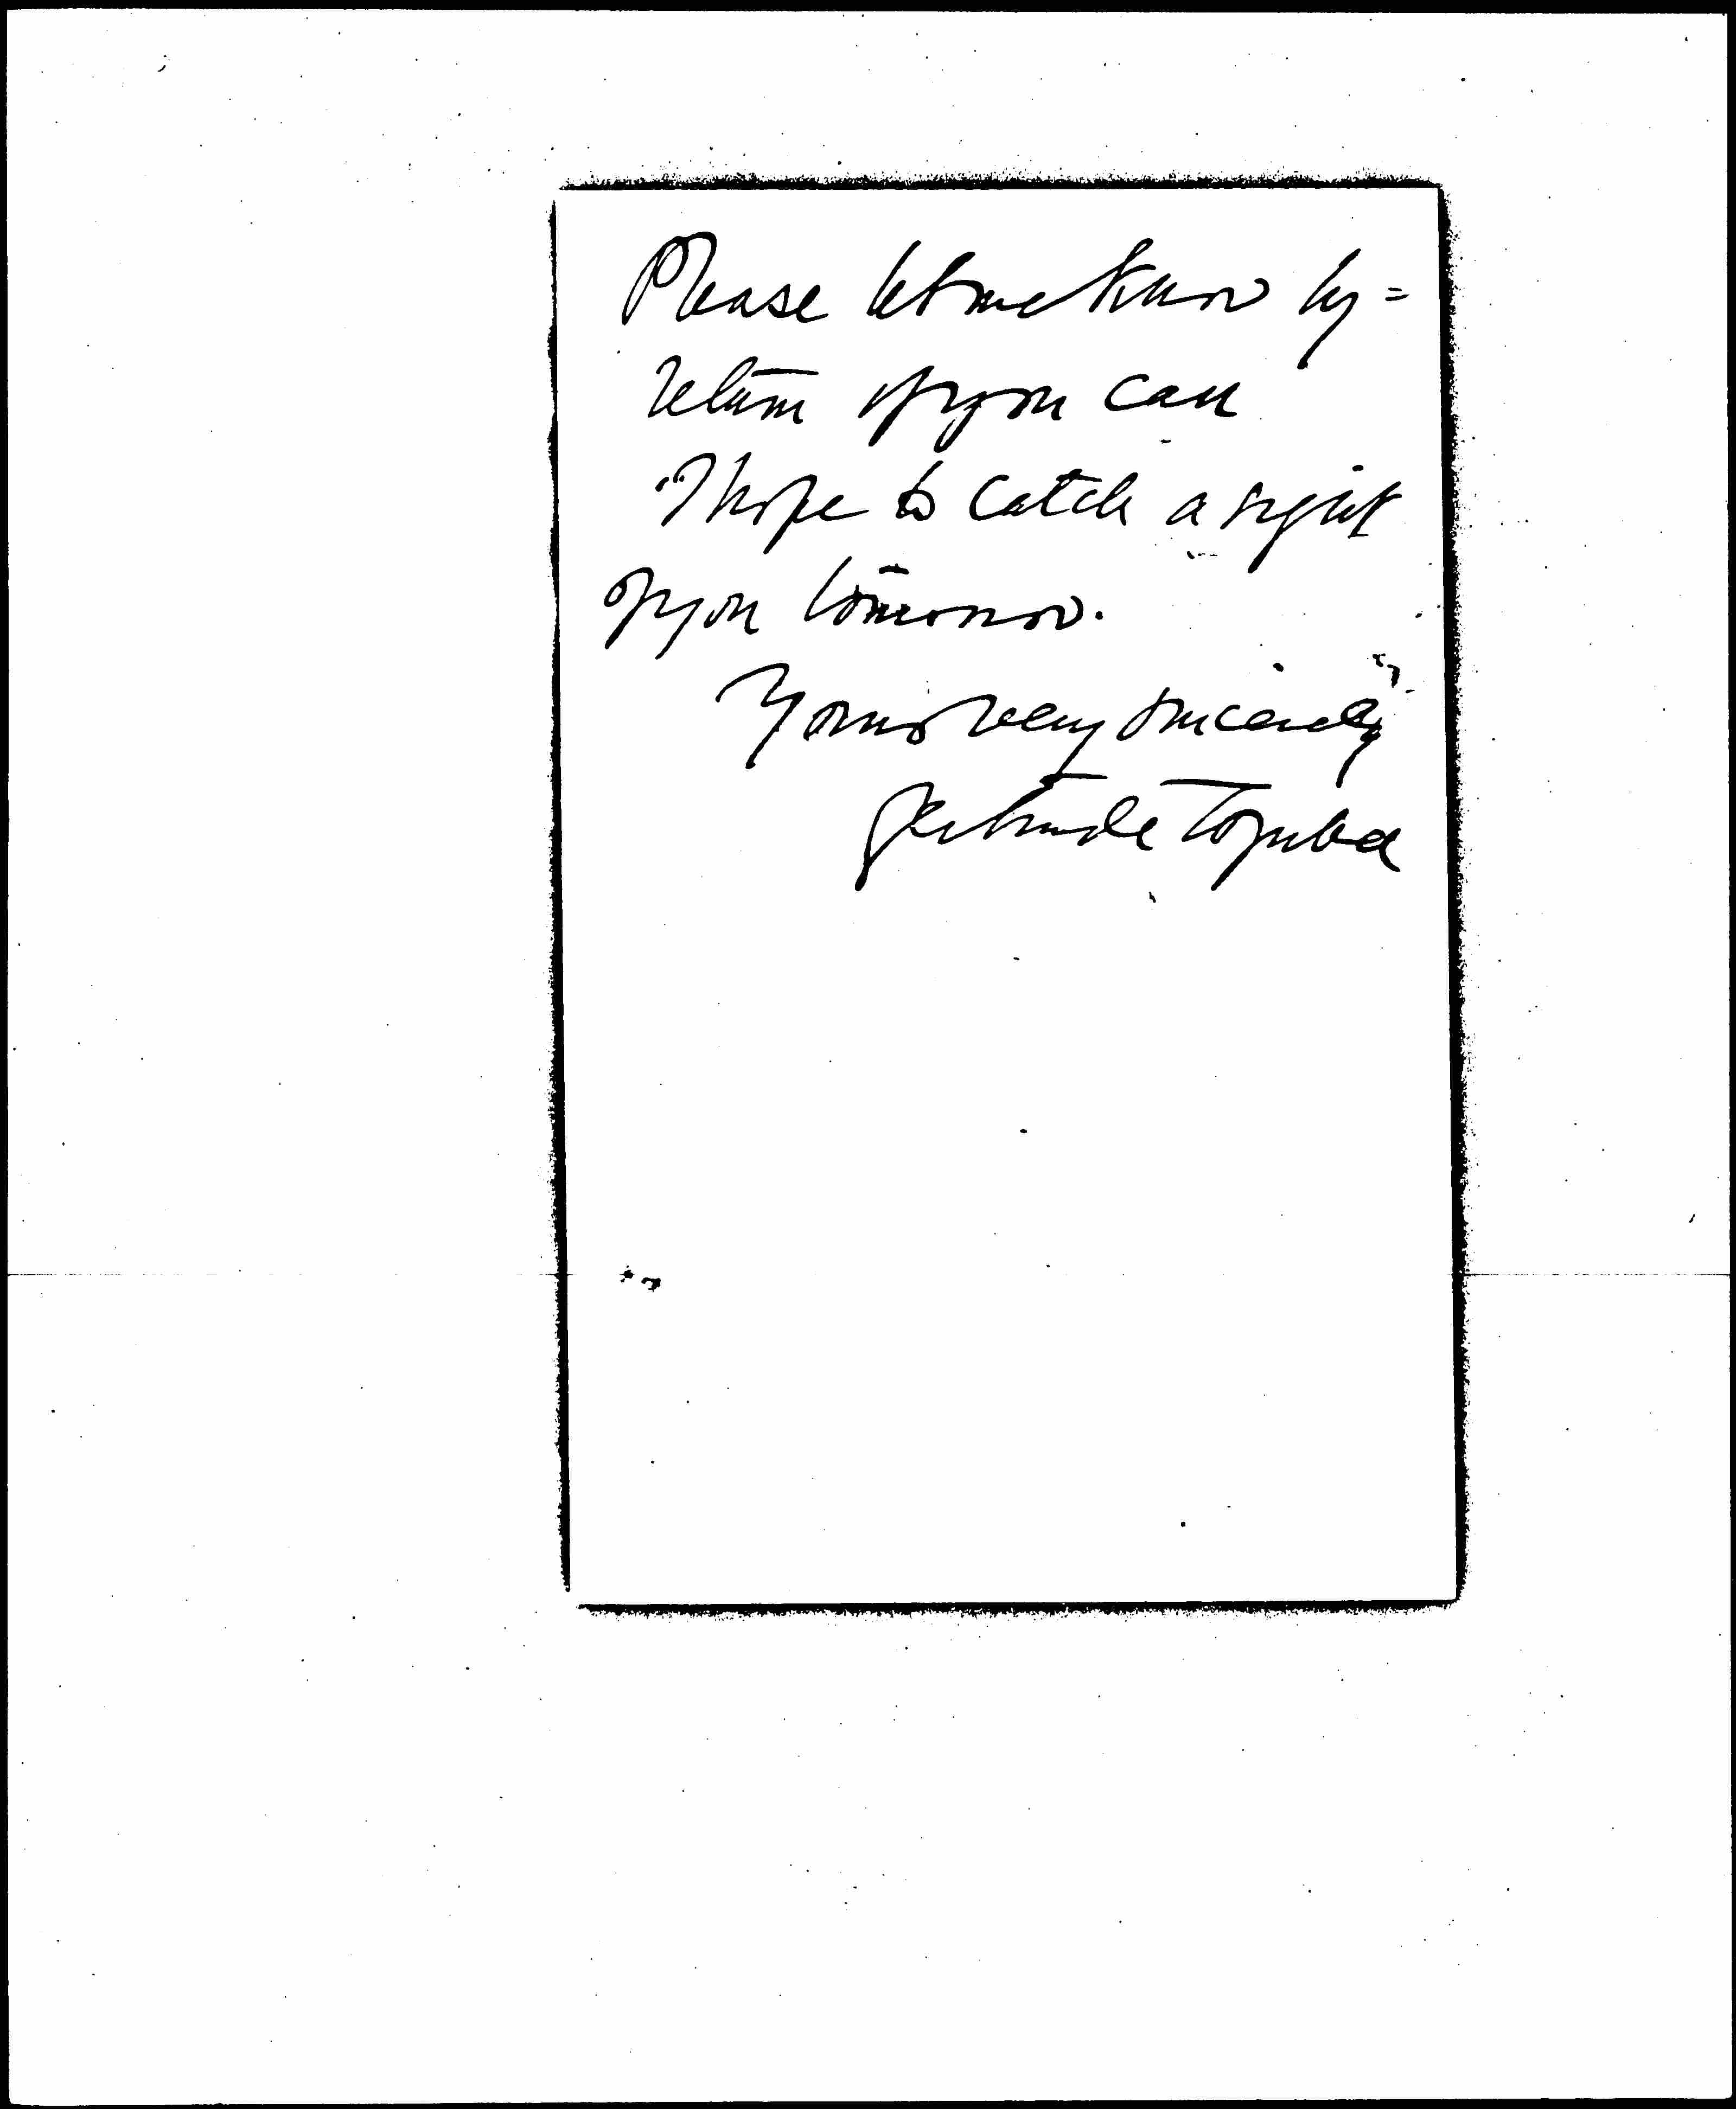 Please let me know by =
return if you can
I hope to catch a sight
of you tomorrow.
Yours very sincerely
Gertrude